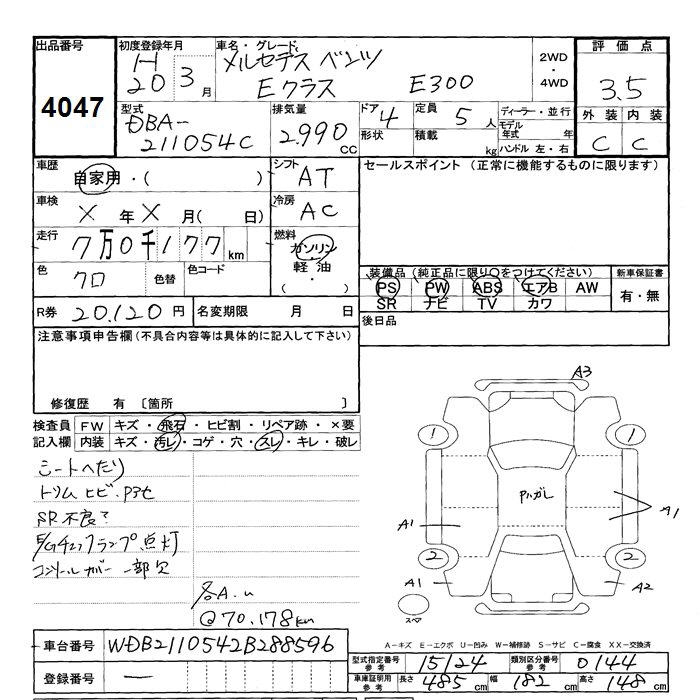 出品番号
4047
初度登録年月
H
20 3月
車名・グレード
メルセデス ベンツ
Eクラス E300
2WD
・
4WD
評価点
3.5
外装 内装
C C
型式
DBA-
211054C
排気量
2.990
CC
ドア 4
定員 5人
形状
積載 kg
ディーラー・並行
モデル
年式 年
ハンドル 左・右
車歴
自家用・( )
シフト
AT
セールスポイント (正常に機能するものに限ります)
車検
X年X月( 日)
冷房
AC
走行
7万0千177km
燃料
ガソリン
軽油
( ・ )
色
クロ
色替
色コード
装備品(純正品に限り○をつけてください)
PS PW ABS エアB AW
SR ナビ TV カワ
新車保証書
有・無
R券 20.120円
名変期限 月 日
後日品
注意事項申告欄(不具合内容等は具体的に記入して下さい)
修復歴 有 〔箇所 〕
検査員
記入欄
FW キズ・飛石・ヒビ割・リペア跡・×要
内装 キズ・汚レ・コゲ・穴・スレ・キレ・破レ
シートヘタリ
トリム ヒビ・
SR不良?
E/Gチェックランプ点灯
コンソールカバー 一部欠
各A.u
@70.178km
A3
1
1
A1
A1
2
2
A1
A2
スペア
A-キズ E-エクボ U-凹み W-補修跡 S-サビ C-腐食 XX-交換済
車台番号 WDB2110542B288596
登録番号 —
型式指定番号
参考
15124
類別区分番号
参考
0144
車庫証明用
参考
長さ 485cm
幅 182cm
高さ 148cm